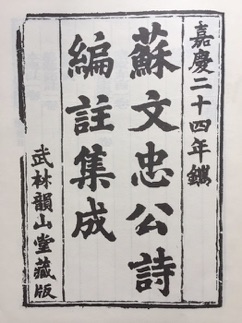 嘉慶二十四年鐫
蘇文忠公詩
編註集成
武林韻山堂藏版